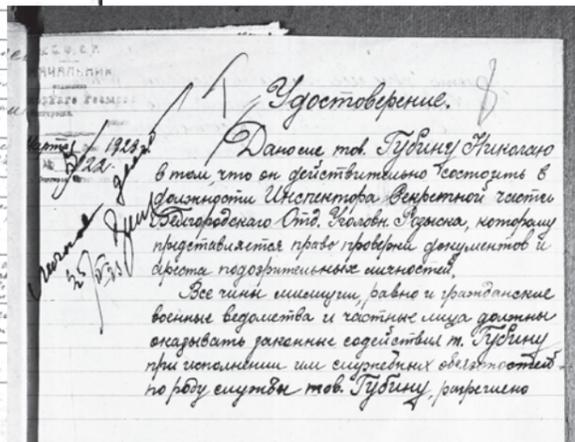 Р.С.Ф.С.Р.
НАЧАЛЬНИК
Марта 1923 г.
№ 22.
Личное дело
Удостоверение.
8
Дано сие тов. Губину Николаю
в том, что он действительно состоить в
должности Инспектора Секретной части
Белгородскаго Отд. Уголовн. Розыска, которому
представляется право проверки документов и
ареста подозрительных личностей.
Все чины милиции, равно и гражданские
военные ведомства и частные лица должны
оказывать законные содействия т. Губину
при исполнении им служебных обязностей.
по роду службы тов. Губину, разрешено